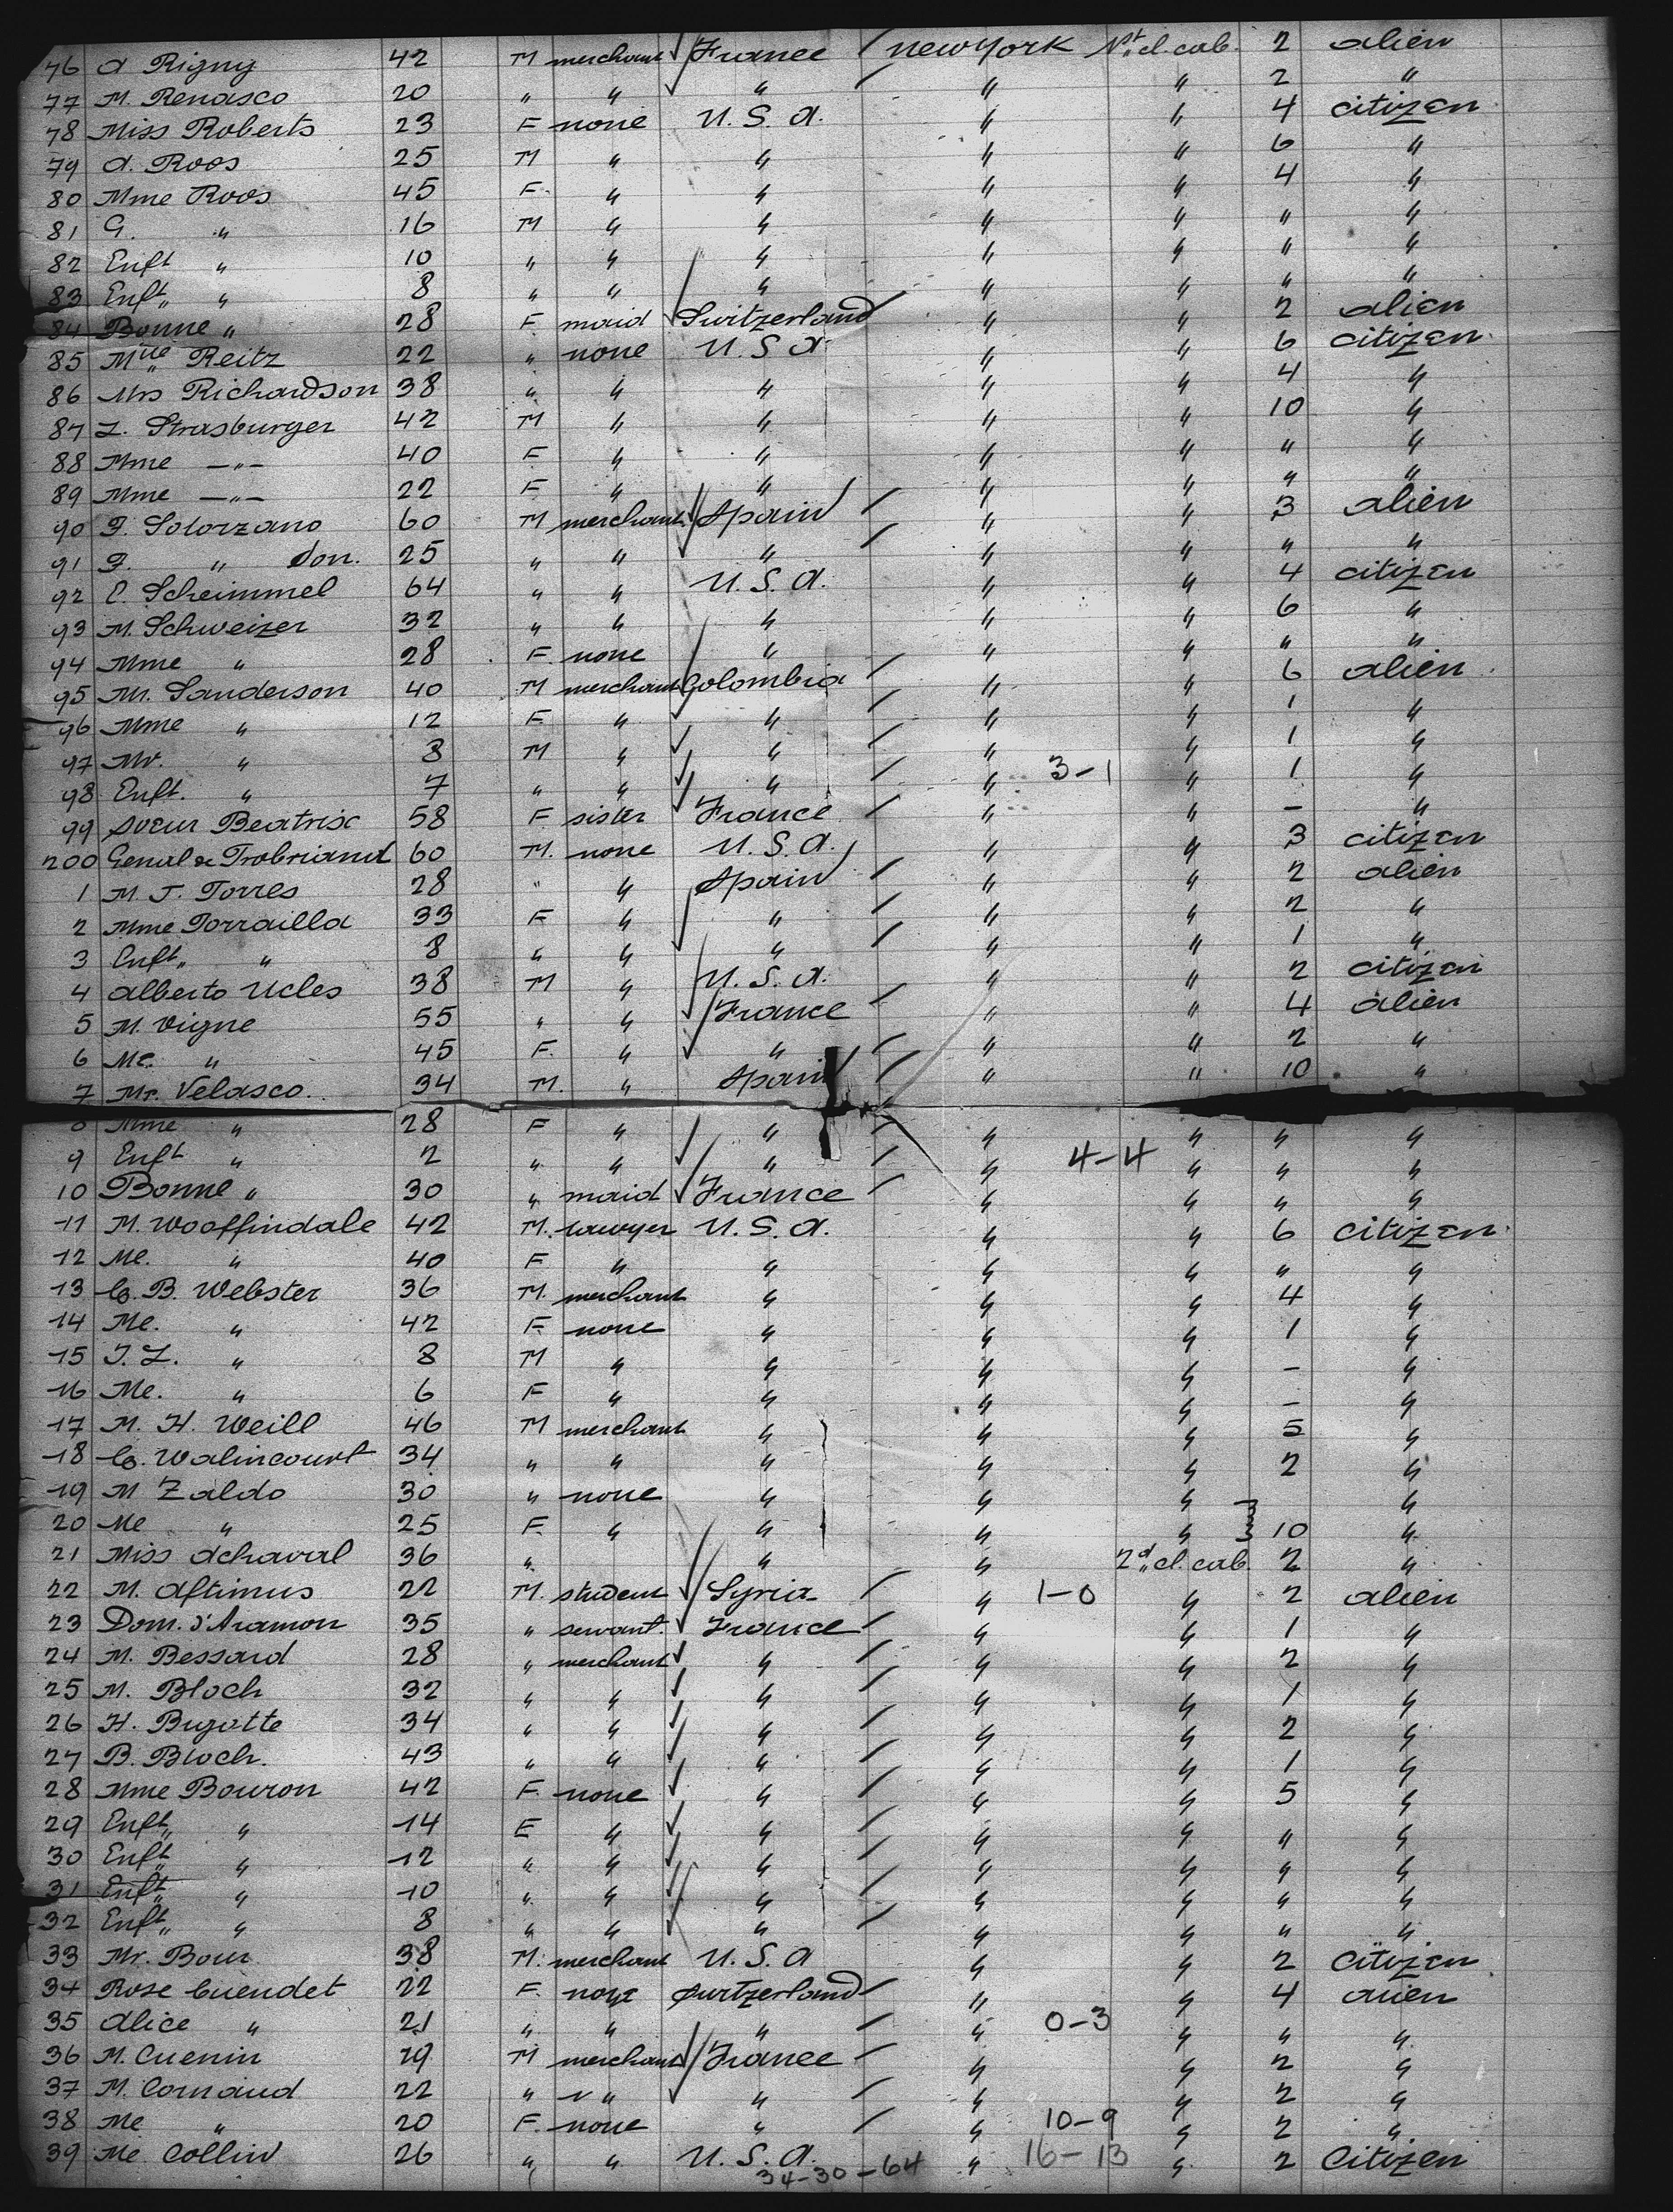 76 A Rigny 42 M merchant France New York 1st cl. cab. 2 alien
77 M. Renasco 20 " " " " " 2 "
78 Miss Roberts 23 F none U.S.A. " " 4 citizen
79 A. Roos 25 M " " " " 6 "
80 Mme Roos 45 F. " " " " 4 "
81 G. " 16 M " " " " " "
82 Enft " 10 " " " " " " "
83 Enft " 8 " " " " " " "
84 Bonne " 28 F. maid Switzerland " " 2 alien
85 Mlle Reitz 22 " none U.S.A. " " 6 citizen
86 Mrs Richardson 38 " " " " " 4 "
87 L. Strasburger 42 M " " " " 10 "
88 Mme —"— 40 F " " " " " "
89 Mme —"— 22 F " " " " " "
90 F. Solorzano 60 M merchant Spain " " 3 alien
91 F. " Son. 25 " " " " " " "
92 C. Scheimmel 64 " " U.S.A. " " 4 citizen
93 M. Schweizer 32 " " " " " 6 "
94 Mme " 28 F. none " " " " "
95 Mr. Sanderson 40 M merchant Colombia " " 6 alien
96 Mme " 12 F. " " " " 1 "
97 Mr. " 8 M " " " " 1 "
98 Enft. " 7 " " " " 3-1 " 1 "
99 Soeur Beatrix 58 F sister France " " - "
200 Genal de Trobriand 60 M. none U.S.A. " " 3 citizen
1 M. J. Torres 28 " " Spain " " 2 alien
2 Mme Torrailla 33 F " " " " 2 "
3 Enft. " 8 " " " " " 1 "
4 Alberto Ucles 38 M " U.S.A. " " 2 citizen
5 M. Vigne 55 " " France " " 4 alien
6 Me. " 45 F. " " " " 2 "
7 Mr. Velasco 34 M. " Spain " " 10 "
8 Mme " 28 F " " " " " "
9 Enft " 2 " " " " 4-4 " " "
10 Bonne " 30 " maid France " " " "
11 M. Wooffindale 42 M. lawyer U.S.A. " " 6 citizen
12 Me. " 40 F " " " " " "
13 C. B. Webster 36 M. merchant " " " 4 "
14 Me. " 42 F. none " " " 1 "
15 J. L. " 8 M " " " " - "
16 Me. " 6 F " " " " - "
17 M. H. Weill 46 M merchant " " " 5 "
18 C. Walincourt 34 " " " " " 2 "
19 M Zaldo 30 " none " " " "
20 Me " 25 F. " " " " 10 "
21 Miss Achaval 36 " " " 2d cl. cab. 2 "
22 M. Aftimus 22 M. student Syria " 1-0 " 2 alien
23 Dom. d'Aramon 35 " servant. France " " 1 "
24 M. Bessard 28 " merchant " " " 2 "
25 M. Bloch 32 " " " " " 1 "
26 H. Bigotte 34 " " " " " 2 "
27 B. Bloch. 43 " " " " " 1 "
28 Mme Bouron 42 F. none " " " 5 "
29 Enft " 14 F " " " " " "
30 Enft " 12 " " " " " " "
31 Enft " 10 " " " " " " "
32 Enft. " 8 " " " " " " "
33 Mr. Bour 38 M. merchant U.S.A " " 2 citizen
34 Rose Cuendet 22 F. none Switzerland " " 4 alien
35 Alice " 21 " " " " 0-3 " " "
36 M. Cuenin 29 M merchant France " " 2 "
37 M. Cornaud 22 " " " " " " 2 "
38 Me " 20 F. none " " 10-9 " 2 "
39 Me Collin 26 " " U.S.A. " 16-13 " 2 Citizen
34-30-64